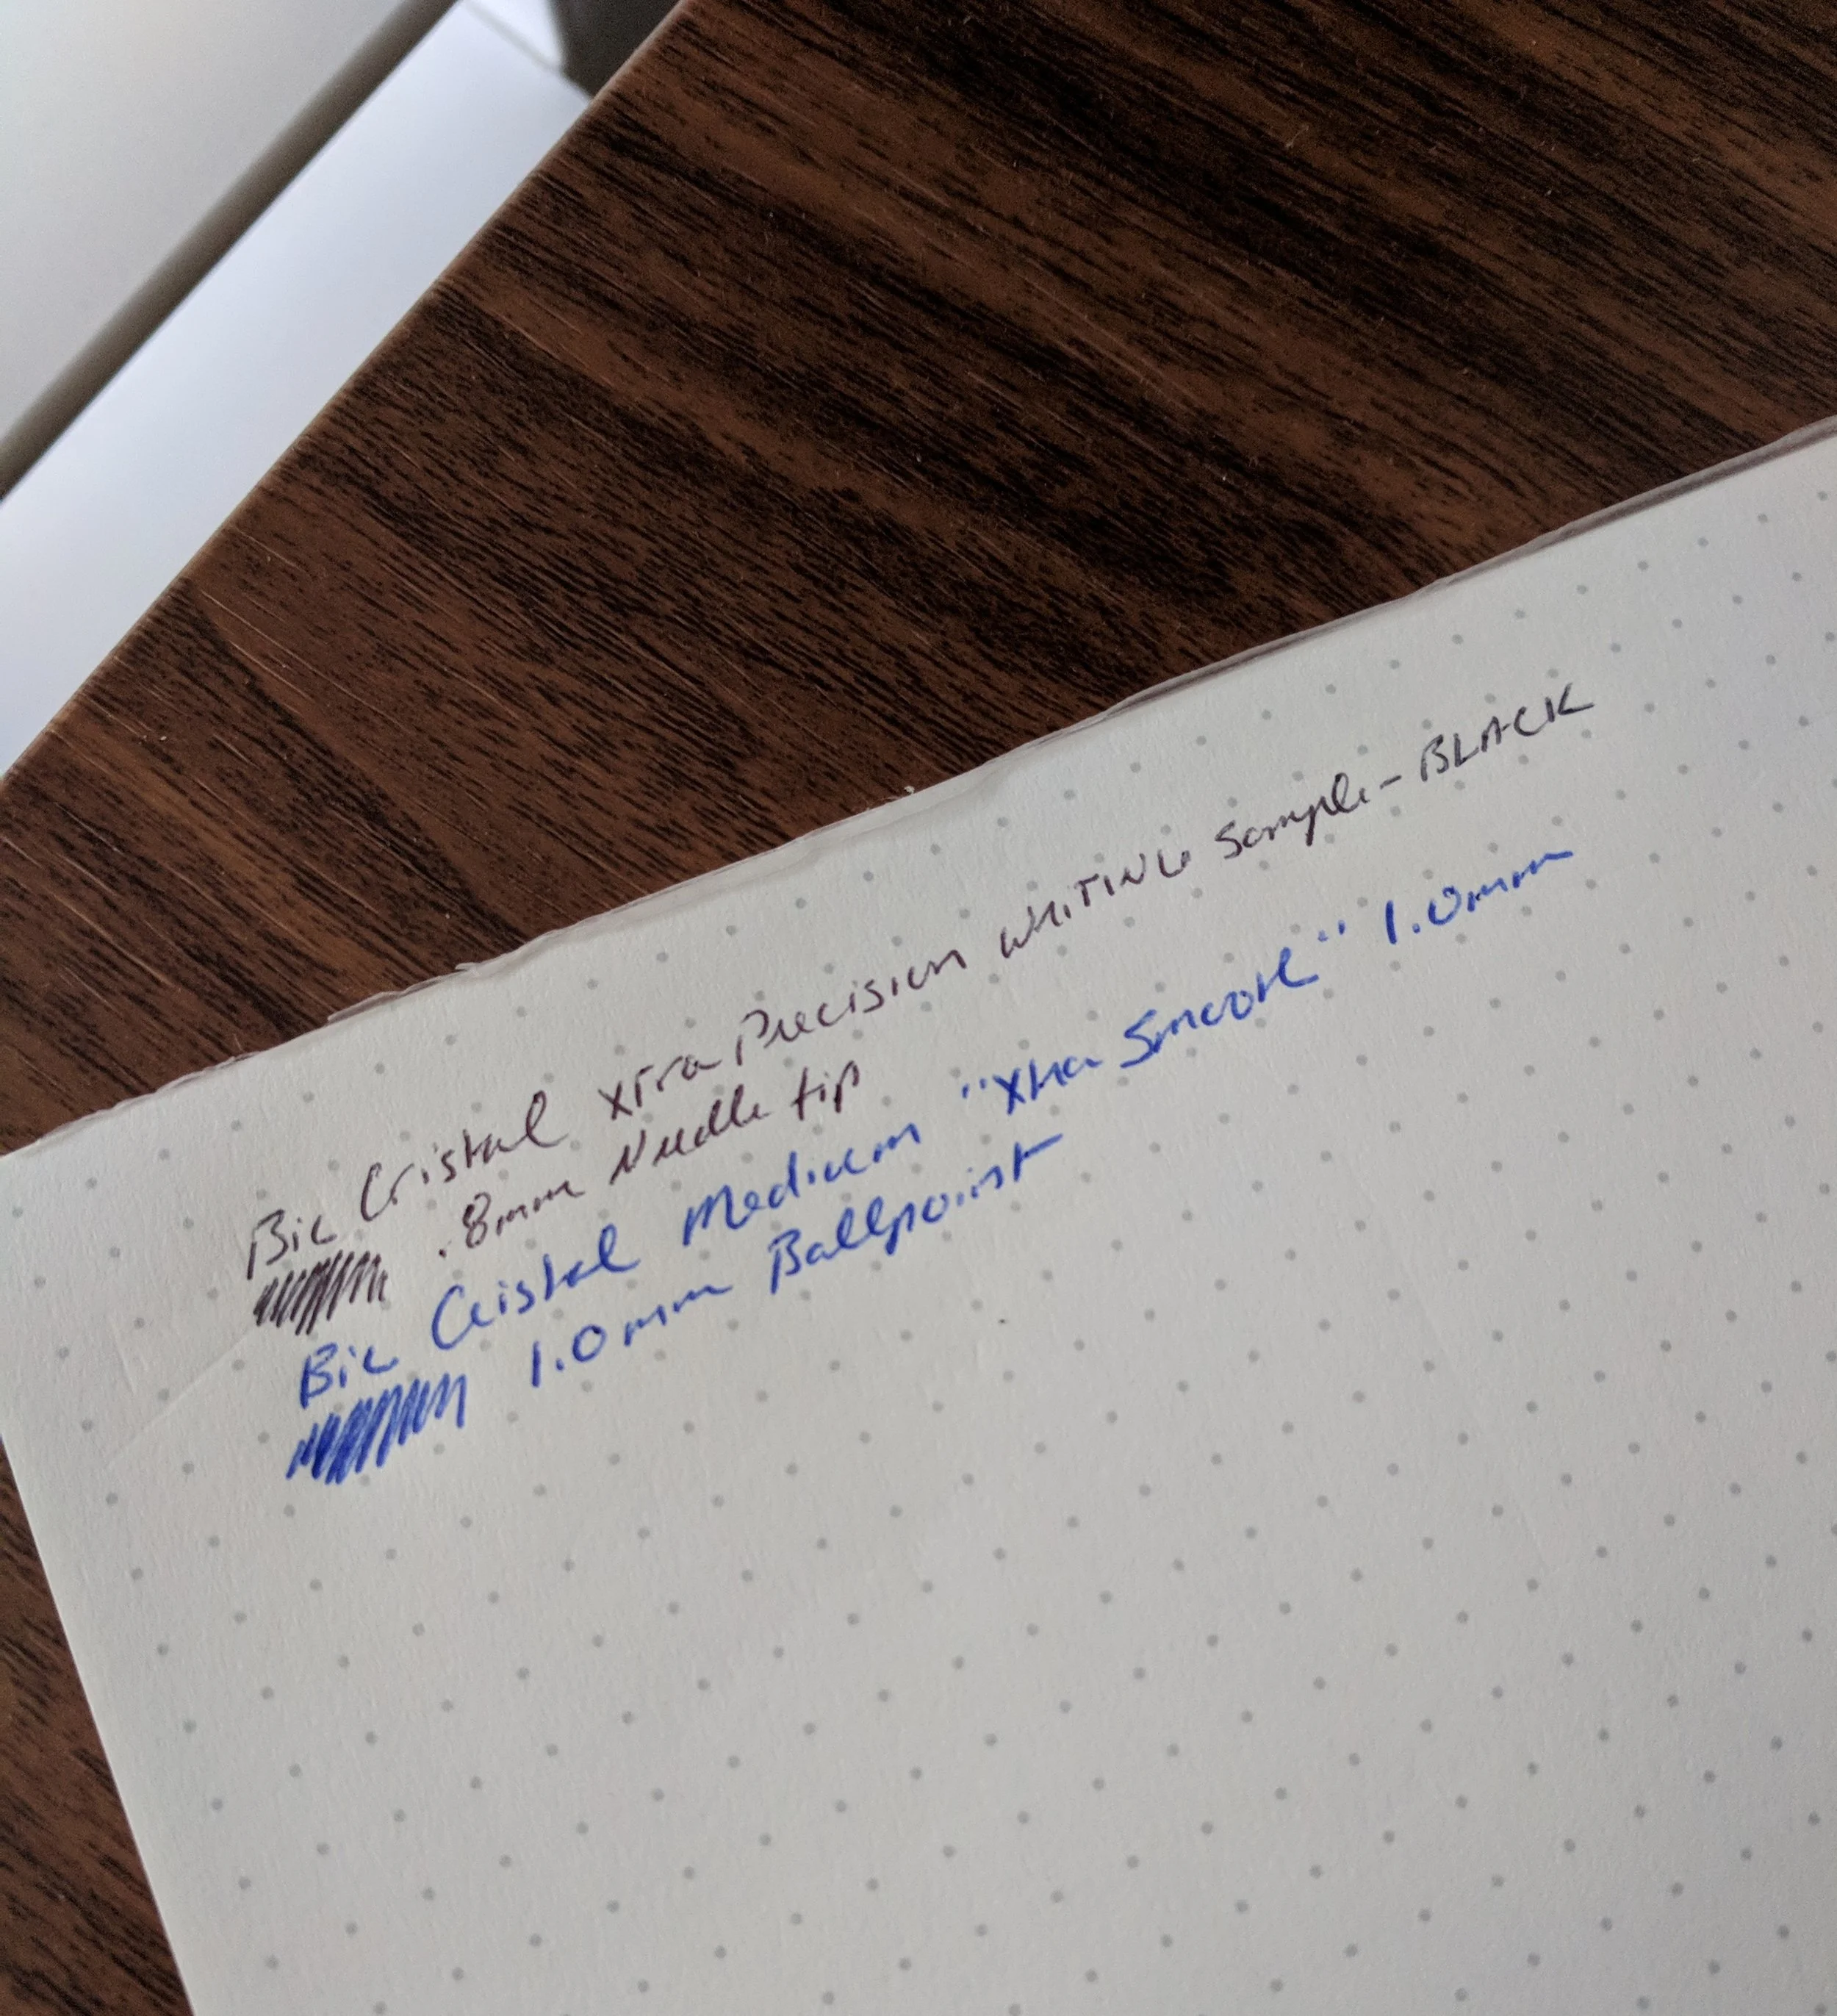 Bic Cristal Xtra Precision WRITING Sample - BLACK
.8mm Needle tip
Bic Cristal Medium "Xtra Smooth" 1.0mm
1.0mm Ballpoint